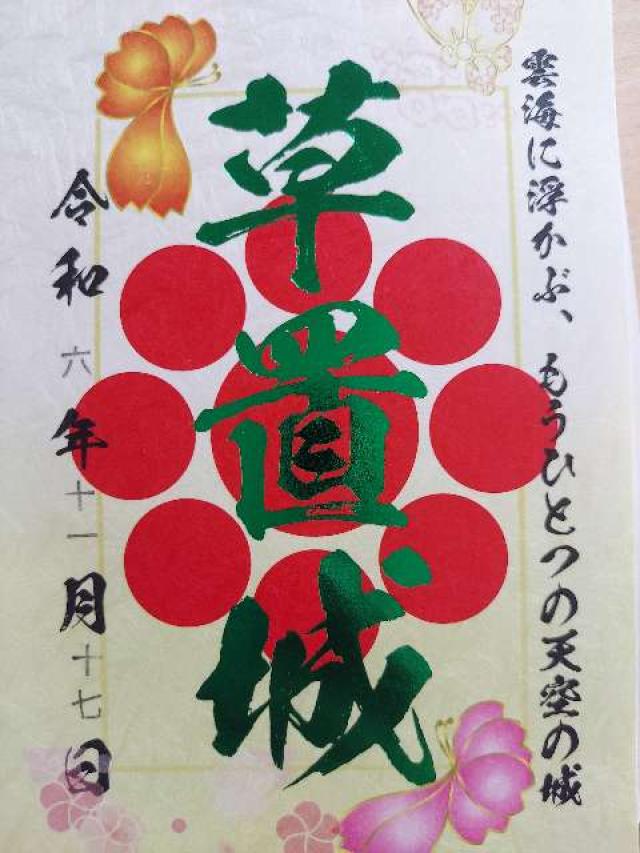 雲海に浮かぶ、もうひとつの天空の城
草置城
令和六年十一月十七日